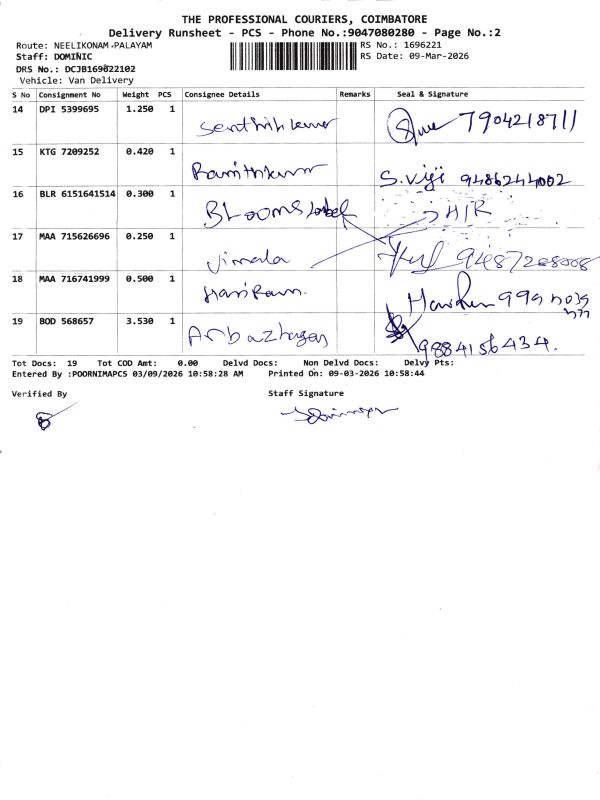 THE PROFESSIONAL COURIERS, COIMBATORE
Delivery Runsheet - PCS - Phone No.:9047080280 - Page No.:2
Route: NEELIKONAM PALAYAM RS No.: 1696221
Staff: DOMINIC RS Date: 09-Mar-2026
DRS No.: DCJB169622102
Vehicle: Van Delivery
S No Consignment No Weight PCS Consignee Details Remarks Seal & Signature
14 DPI 5399695 1.250 1 Senthilkumar 7904218711
15 KTG 7209252 0.420 1 S.Viji 9486244002
16 BLR 6151641514 0.300 1 BLooms
17 MAA 715626696 0.250 1 Vimala
18 MAA 716741999 0.500 1 HariRam.
19 BOD 568657 3.530 1 Arbazhagan 9884156434.
Tot Docs: 19 Tot COD Amt: 0.00 Delvd Docs: Non Delvd Docs: Delvy Pts:
Entered By :POORNIMAPCS 03/09/2026 10:58:28 AM Printed On: 09-03-2026 10:58:44
Verified By Staff Signature